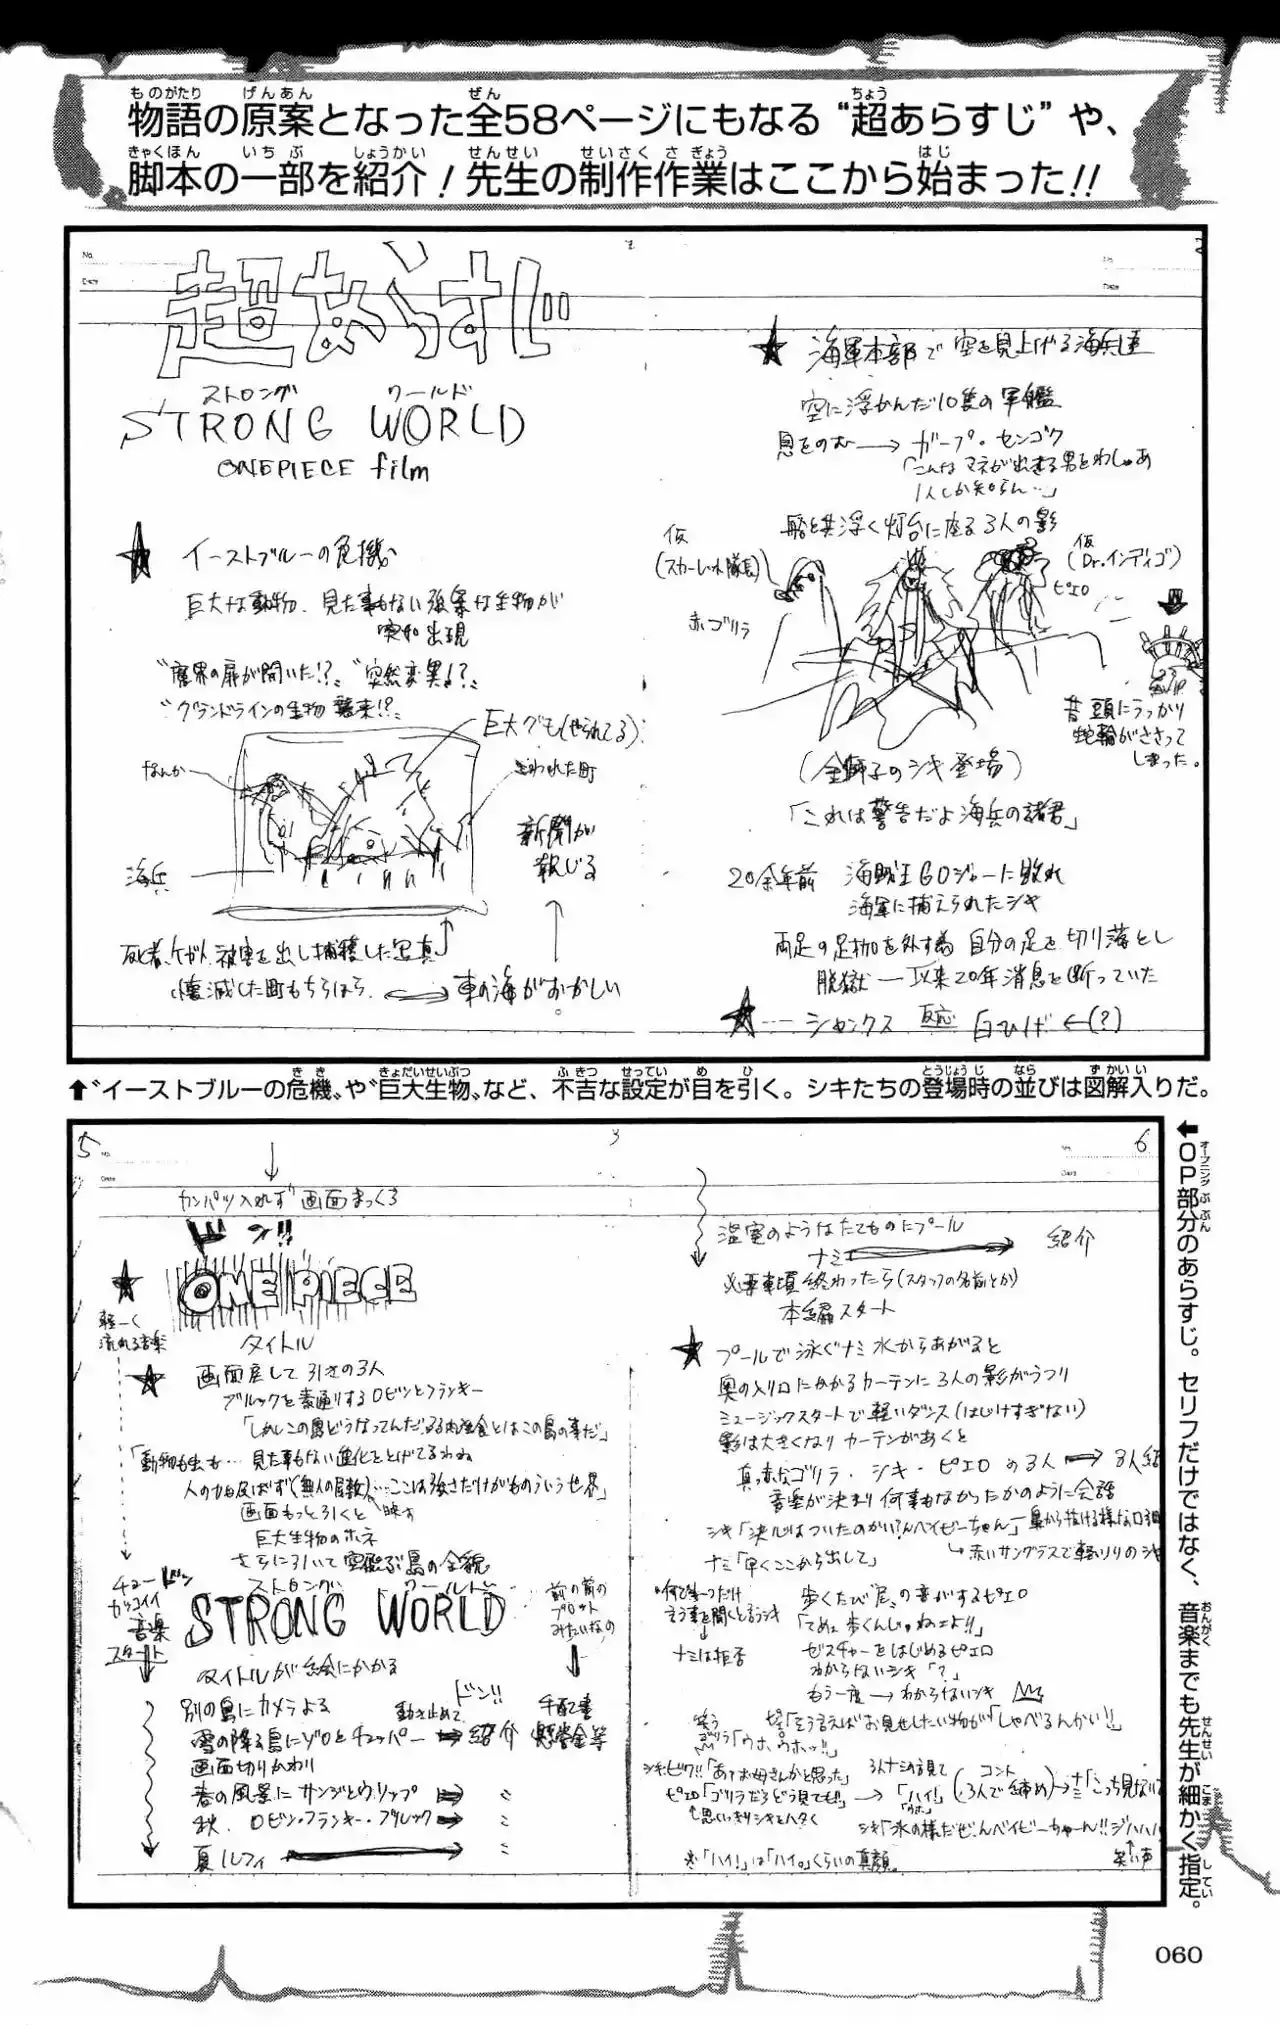 物語の原案となった全58ページにもなる“超あらすじ”や、
脚本の一部を紹介！先生の制作作業はここから始まった!!
超あらすじ
ストロング ワールド
STRONG WORLD
ONEPIECE film
イーストブルーの危機
巨大な動物、見た事もない強暴な生物が
突如出現
“魔界の扉が開いた!?” “突然変異!?”
“グランドラインの生物 襲来!?”
巨大グモ(やられてる)
なんか
襲われた町
海兵
新聞が
報じる
死者、ケガ人、被害を出し捕獲した写真
壊滅した町もちらほら
東の海がおかしい。
海軍本部で空を見上げる海兵達
空に浮かんだ10隻の軍艦
息をのむ→ガープ・センゴク
「こんなマネが出来る男をわしゃあ
1人しか知らん…」
船と共浮く灯台に座る3人の影
仮
(スカーレット隊長)
赤ゴリラ
仮
(Dr.インディゴ)
ピエロ
昔頭にうっかり
蛇輪がささって
しまった。
(金獅子のシキ登場)
「これは警告だよ海兵の諸君」
20余年前 海賊王Gロジャーに敗れ
海軍に捕えられたシキ
両足の足枷を外す為 自分の足を切り落とし
脱獄―以来20年消息を断っていた
シャンクス 反応 白ひげ ←(?)
⬆“イーストブルーの危機”や“巨大生物”など、不吉な設定が目を引く。シキたちの登場時の並びは図解入りだ。
5
3
カンパツ入れず画面まっくろ
ドン!!
ONE PIECE
タイトル
軽ーく
流れる音楽
画面戻して引きの3人
ブルックを素通りするロビンとフランキー
「動物も虫も…見た事もない進化をとげてるわね
人の力も及ばず(無人の屋敷)…ここは強さだけがものをいう世界」
画面もっと引くと
映す
巨大生物のホネ
さらに引いて空飛ぶ島の全貌
ストロング ワールド
STRONG WORLD
タイトルが絵にかかる
カッコイイ
音楽
スタート
前の前の
プロット
みたいなの
別の島にカメラよる
雪の降る島にゾロとチョッパー
動き止めて
ドン!!
紹介
手配書
懸賞金等
画面切りかわり
春の風景にサンジとウソップ
秋、ロビン・フランキー・ブルック
夏 ルフィ
6
温室のようなたてものにプール
ナミ
紹介
必要事項終わったら(スタッフの名前とか)
本編スタート
プールで泳ぐナミ 水からあがると
奥の入り口にかかるカーテンに3人の影がうつり
ミュージックスタートで軽いダンス(はじけすぎない)
影は大きくなりカーテンがあくと
真っ赤なゴリラ・シキ・ピエロの3人
音楽が決まり何事もなかったかのように会話
シキ「決心はついたのかい?んベイビーちゃん」
鼻から抜ける様な口調
赤いサングラスで葉巻のシキ
ナミ「早くここから出して」
何で1つだけ
言う事を聞くと言うシキ
ナミは拒否
歩くたび“屁”の音がするピエロ
「てめェ歩くんじゃねェよ!!」
ゼスチャーをはじめるピエロ
わからないシキ「?」
もう一度→わからないシキ
ピエロ「そう言えばお見せしたい物が」「しゃべるんかい!!」
笑う
ゴリラ「ウホ、ウホッ!!」
シキ・ビクッ!!「あァお母さんかと思った」
ピエロ「ゴリラだろどう見ても!!」
思いっきりシキをハタく
3人ナミの方見て
「ハイ!」
コント
(3人で締め)
シキ「水の様だぜ、んベイビーちゃーん!!ジハハハ
笑い声
※「ハイ!」は「ハイ。」くらいの真顔
⬅OP部分のあらすじ。セリフだけではなく、音楽までも先生が細かく指定。
060